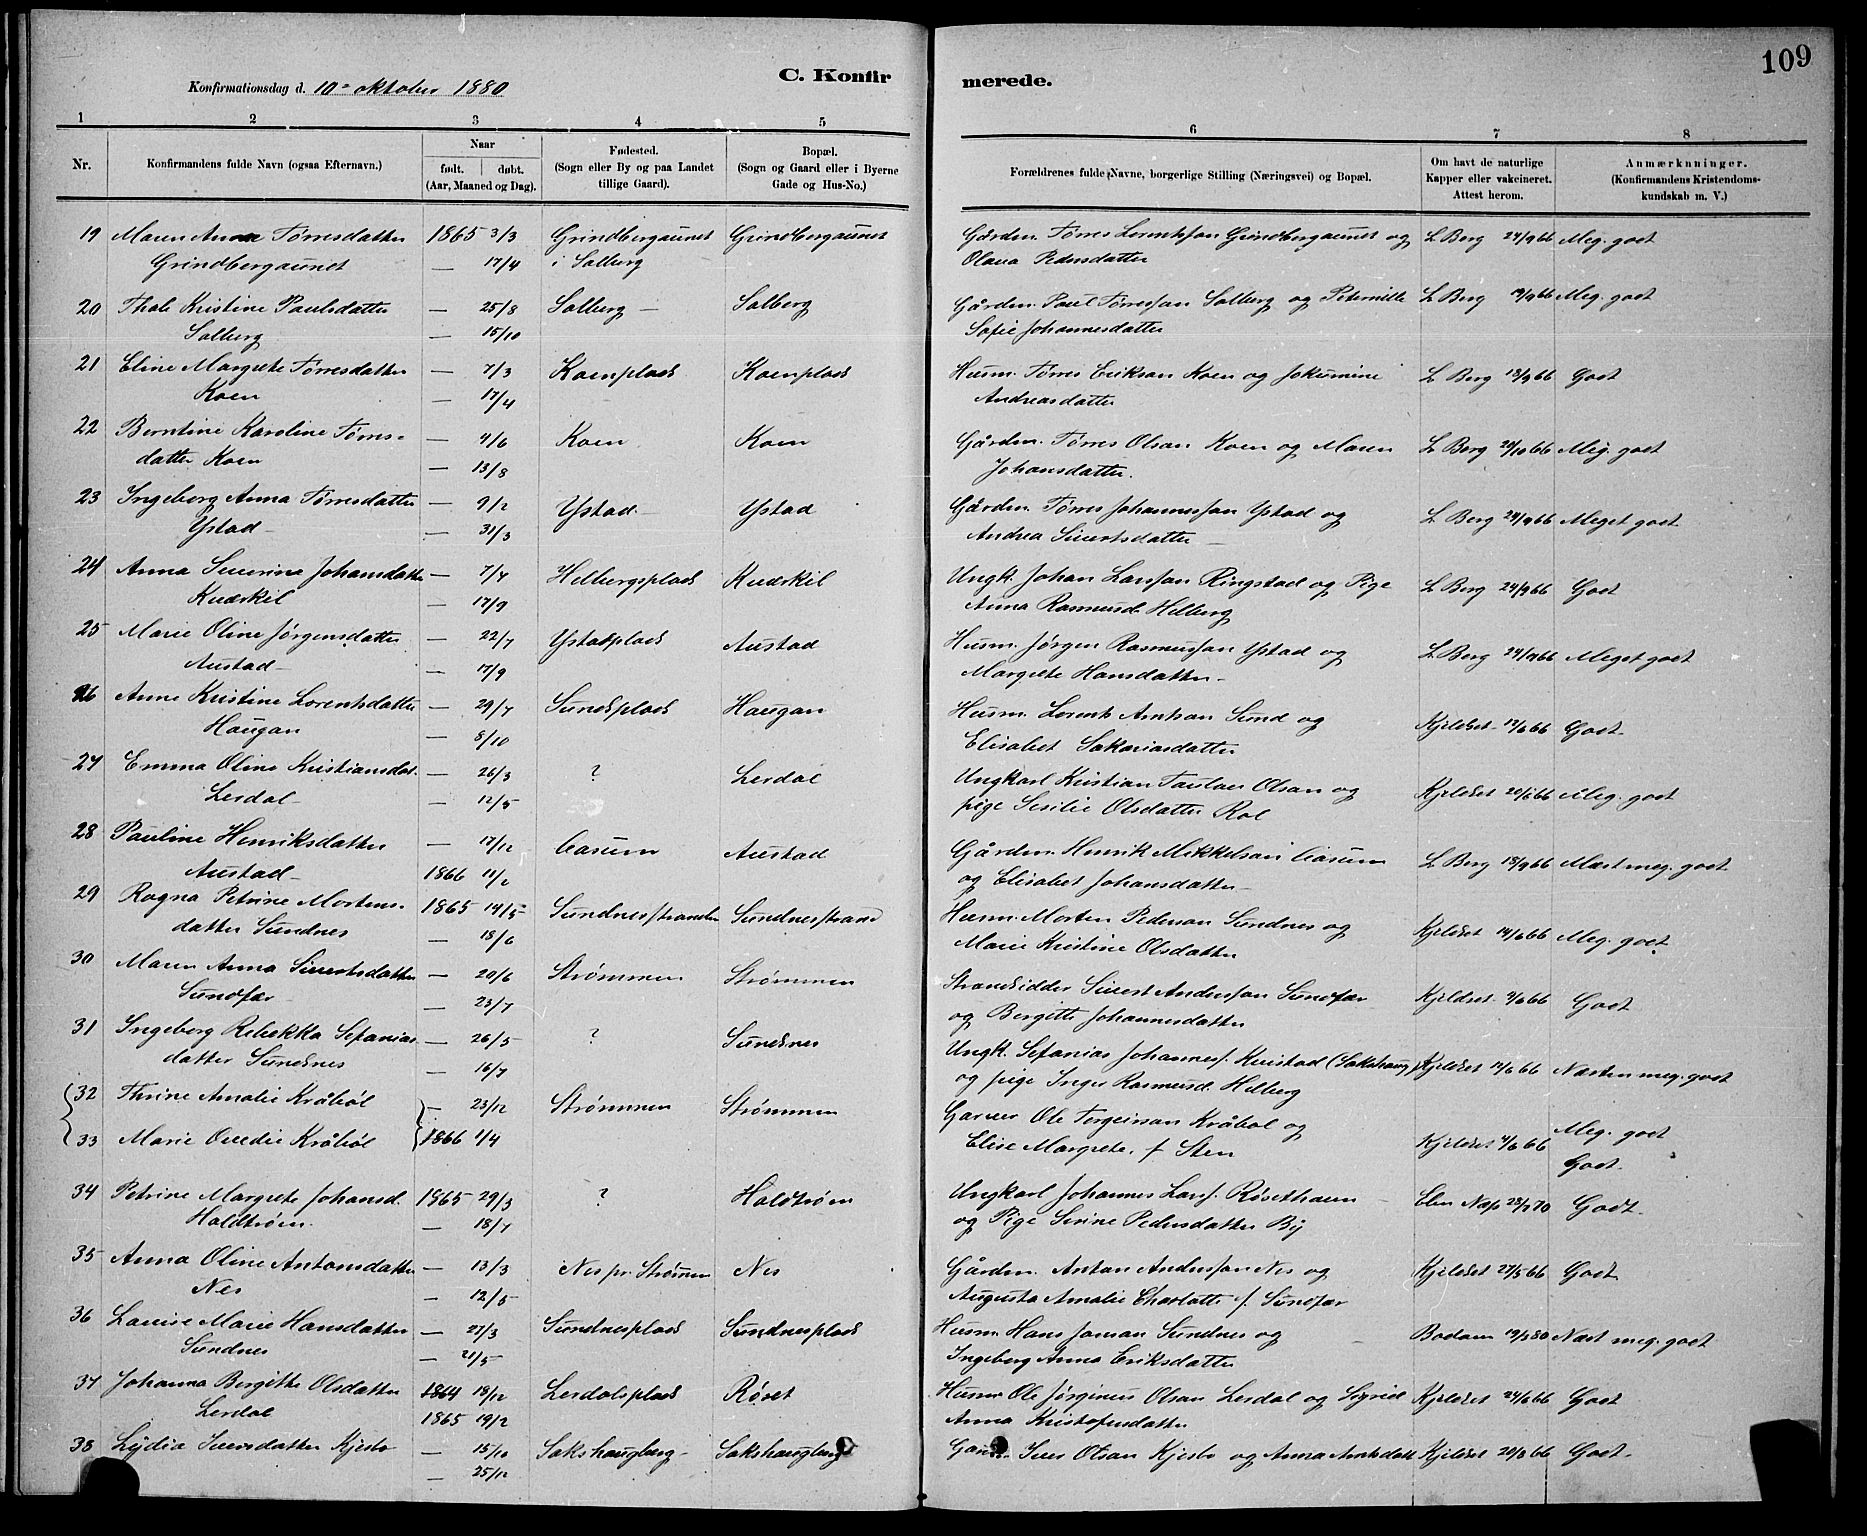 109
C. Konfir
merede.
Konfirmationsdag d. 10 oktober 1880
1 2 3 4 5 6 7 8
Nr. Konfirmandens fulde Navn (ogsaa Efternavn.)
Naar
født. døbt.
(Aar, Maaned og Dag).
Fødested.
(Sogn eller By og paa Landet
tillige Gaard).
Bopæl.
(Sogn og Gaard eller i Byerne
Gade og Hus-No.)
Forældrenes fulde Navne, borgerlige Stilling (Næringsvei) og Bopæl.
Om havt de naturlige
Kapper eller vakcineret.
Attest herom.
Anmærkninger.
(Konfirmandens Kristendoms-
kundskab m. V.)
19 Maren Anna Tørresdatter 1865 3/3 Grindbergaunet Grindbergaunet Gårdm. Tørres Lorentssen Grindbergaunet og L Berg 24/9 66 Meg. godt
Grindbergaunet — 17/4 i Salberg Olava Pedersdatter
20 Thale Kristine Paulsdatter — 25/8 Salberg — Salberg Gårdm. Paul Tørressen Salberg og Peternille L Berg 19/9 66 Meg. godt
Salberg — 15/10 Sofie Johannesdatter
21 Eline Margrete Tørresdatter — 7/3 Koenplads Koenplads Husm. Tørres Eriksen Koen og Jokumine L Berg 18/9 66 Godt
Koen — 17/4 Andreasdatter
22 Berntine Karoline Tørres- — 4/6 Koen Koen Gårdm. Tørres Olsen Koen og Maren L Berg 20/10 66 Meg. godt
datter Koen — 13/8 Johansdatter.
23 Ingeborg Anna Tørresdatter — 9/2 Ystad — Ystad Gårdm. Tørres Johannessen Ystad og L Berg 24/9 66 Meget godt
Ystad — — 31/3 Andrea Sivertsdatter —
24 Anna Severina Johansdatter — 7/7 Helbergsplads Kverkil Ungk. Johan Larssen Ringstad og Pige L Berg 24/9 66 Godt
Kverkil — 17/9 Anna Rasmusd. Helberg
25 Marie Oline Jørgensdatter — 22/7 Ystadplads Austad Husm. Jørgen Rasmussen Ystad og L Berg 24/9 66 Meget godt
Austad — — 17/9 Margrete Hansdatter —
26 Anne Kristine Lorentsdatter — 29/7 Sundsplads Haugan Husm. Lorents Arntsen Sund og Kjeldset 12/6 66 Godt
Haugan — 8/10 Elisabet Sakariasdatter
27 Emma Oline Kristiansdat. — 26/3 ? Lerdal Ungkarl Kristian Paulus Olsen og Kjeldset 20/6 66 Meg. godt
Lerdal — — 12/5 pige Sesilie Olsdatter Rol
28 Pauline Henriksdatter — 17/12 Aasum Austad Gårdm. Henrik Mikkelsen Aasum L Berg 18/9 66 Næst meg. godt
Austad — 1866 11/2 og Elisabet Johansdatter —
29 Ragna Petrine Mortens- 1865 14/5 Sundnesstranden Sundnesstrand Husm. Morten Pedersen Sundnes og Kjeldset 14/6 66 Meg. godt
datter Sundnes — 18/6 Marie Kristine Olsdatter
30 Maren Anna Sivertsdatter — 20/6 Strømmen Strømmen Strandsidder Sivert Anderssen Sundfær Kjeldset 9/6 66 Godt
Sundfær — 23/7 og Bergitte Johannesdatter
31 Ingeborg Rebekka Sefanias — 26/5 ? Sundsnes Ungk. Sefanias Johannes. Kvistad (Sakshaug) Kjeldset 14/6 66 Næsten meg. godt
datter Sundsnes — 16/7 og pige Inger Rasmusd. Helberg
32 Thrine Amalie Kråbøl — 23/12 Strømmen Strømmen Garver Ole Torgeirsen Kråbøl og Meg. godt
33 Marie Ovedie Kråbøl 1866 1/4 Elise Margrete f. Sten Kjeldset 4/6 66 Godt.
34 Petrine Margrete Johansd. 1865 29/3 ? Haldtrøen Ungkarl Johannes Lars. Røsethaun Eben Næss 28/7 70 Godt.
Haldtrøen — 18/7 og Pige Serine Pedersdatter By
35 Anna Oline Antonsdatter — 13/3 Nes pr. Strømmen Nes Gårdm. Anton Anderssen Nes og Kjeldset 27/5 66 Godt
Nes — 12/5 Augusta Amalie Charlotte f. Sundfær
36 Lauise Marie Hansdatter — 27/3 Sundnesplads Sundnesplads Husm. Hans Jonsen Sundnes og Bodom 19/9 80 Næst meg. godt
Sundnes — 21/5 Ingeborg Anna Eriksdatter
37 Johanna Bergitte Olsdatter 1864 18/12 Lerdalsplads Røset Husm. Ole Jørginus Olsen Lerdal og Sigrid Kjeldset 24/6 66 Godt
Lerdal 1865 19/2 Anna Kristofersdatter
38 Lydia Iversdatter Kjesbo — 15/10 Sakshaugberg Sakshaugberg Iver Olsen Kjesbo og Anna Arntsdatt Kjeldset 20/8 66 Godt
— 25/12